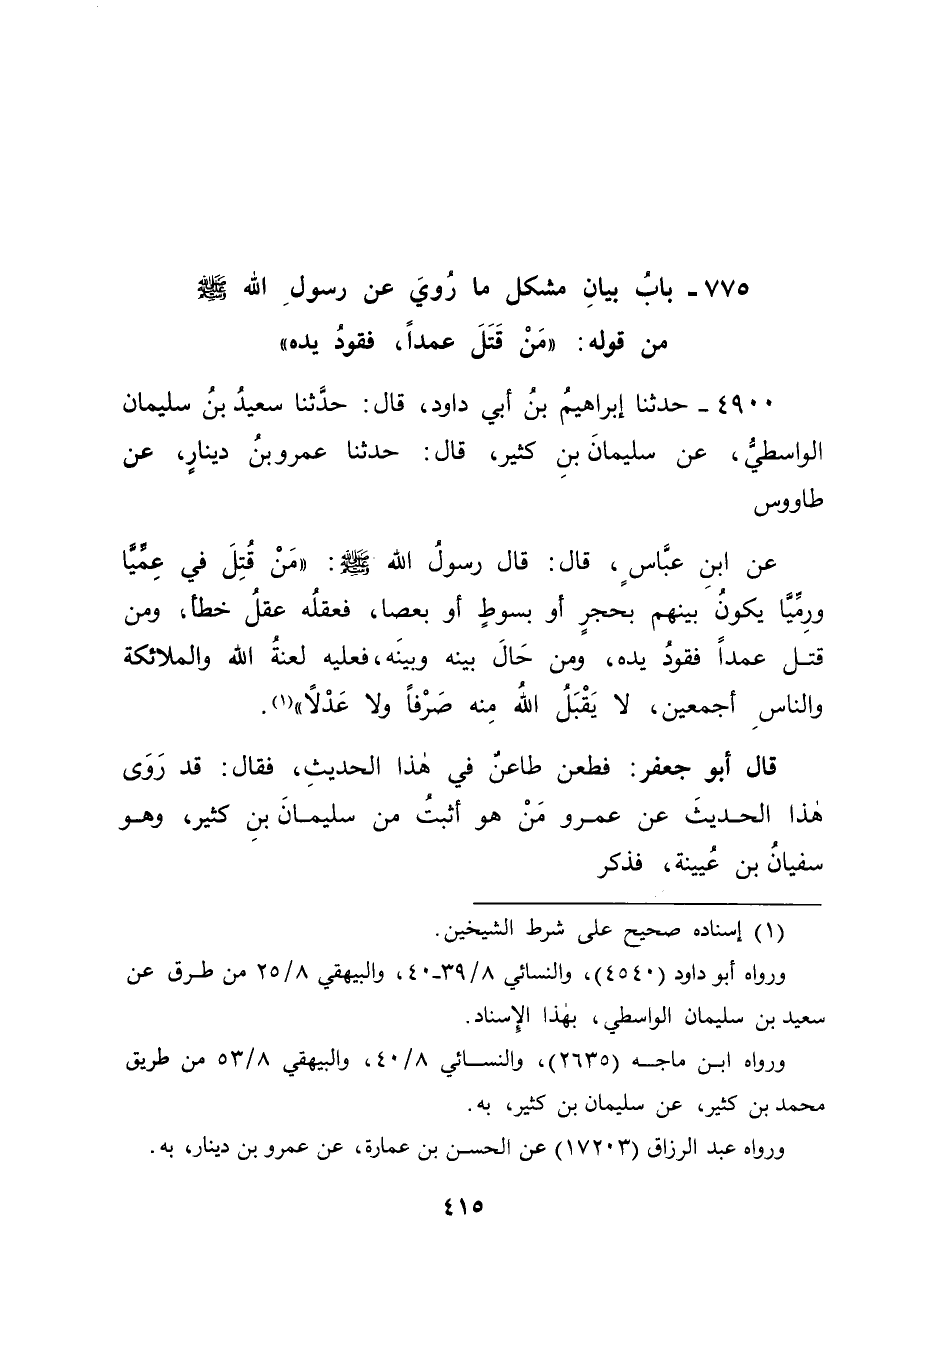 ٧٧٥ـ بابُ بيانِ مشكل ما رُويَ عن رسولِ الله ﷺ
من قوله: «مَنْ قَتَلَ عمداً، فقودُ يده»
٤٩٠٠ ـ حدثنا إبراهيمُ بنُ أبي داود، قال: حدَّثنا سعيدُ بنُ سليمان
الواسطيُّ، عن سليمانَ بنِ كثير، قال: حدثنا عمرو بنُ دينارٍ، عن
طاووس
عن ابنِ عبَّاسٍ، قال: قال رسولُ الله ﷺ: «مَنْ قُتِلَ في عِمِّيَّا
ورِمِّيَّا يكونُ بينهم بحجرٍ أو بسوطٍ أو بعصا، فعقلُه عقلُ خطأ، ومن
قتل عمداً فقودُ يده، ومن حَالَ بينه وبينَه، فعليه لعنةُ الله والملائكة
والناسِ أجمعين، لا يَقْبَلُ اللهُ مِنه صَرْفاً ولا عَدْلًا»(١).
قال أبو جعفر: فطعن طاعنٌ في هٰذا الحديثِ، فقال: قد رَوَى
هٰذا الحديثَ عن عمرو مَنْ هو أثبتُ من سليمانَ بنِ كثير، وهو
سفيانُ بن عُيينة، فذكر
(١) إسناده صحيح على شرط الشيخين.
ورواه أبو داود (٤٥٤٠)، والنسائي ٣٩/٨ـ٤٠، والبيهقي ٢٥/٨ من طرق عن
سعيد بن سليمان الواسطي، بهٰذا الإِسناد.
ورواه ابن ماجه (٢٦٣٥)، والنسائي ٤٠/٨، والبيهقي ٥٣/٨ من طريق
محمد بن كثير، عن سليمان بن كثير، به.
ورواه عبد الرزاق (١٧٢٠٣) عن الحسن بن عمارة، عن عمرو بن دينار، به.
٤١٥